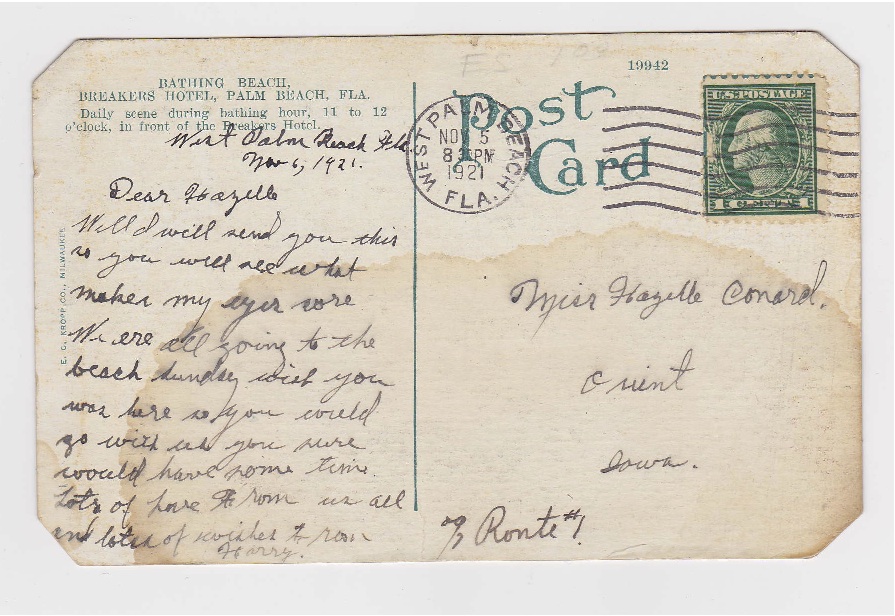 BATHING BEACH,
BREAKERS HOTEL, PALM BEACH, FLA.
Daily scene during bathing hour, 11 to 12
o'clock, in front of the Breakers Hotel.
West Palm Beach Fla
Nov 6, 1921.
Dear Hazelle
Well I will send you this
so you will see what
makes my eyes sore
We are all going to the
beach sunday wish you
was here so you could
go with us you sure
would have some time
Lots of love From us all
and lots of wishes from
Harry.
E. C. KROPP CO., MILWAUKEE
19942
Post
Card
WEST PALM BEACH
NOV 5
8 PM
1921
FLA.
U.S. POSTAGE
Miss Hazelle Conard.
Orient
Iowa.
Route #1